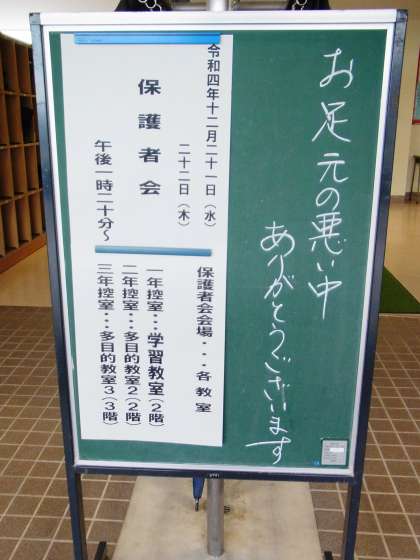 お足元の悪い中
ありがとうございます
令和四年十二月二十一日（水）
二十二日（木）
保護者会
午後一時二十分～
保護者会会場・・・各教室
一年控室・・・学習教室（２階）
二年控室・・・多目的教室２（２階）
三年控室・・・多目的教室３（３階）